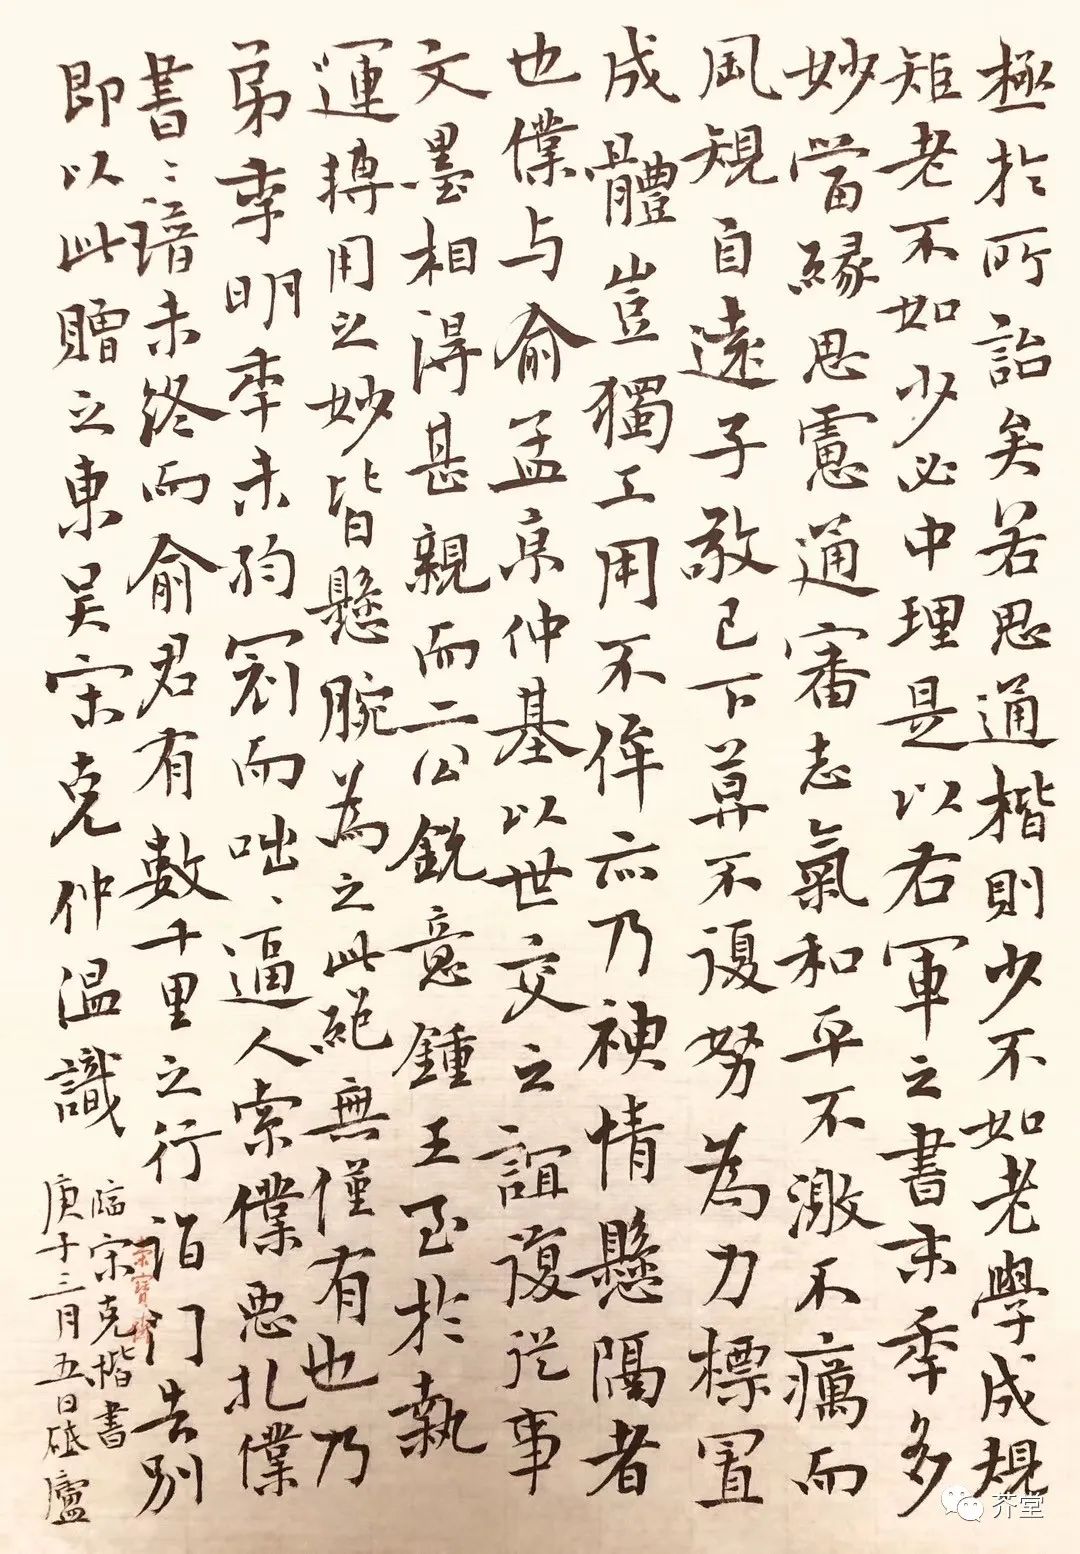 極於所詣矣若思通楷則少不如老學成規
矩老不如少必中理是以右軍之書末年多
妙當緣思慮通審志氣和平不激不癘而
風規自遠子敬已下莫不復努為力標置
成體豈獨工用不侔亦乃神情懸隔者
也僕与俞孟京仲基以世交之誼復從事
文墨相得甚親而二公銳意鍾王至於執
運摶用之妙皆懸腕為之此絕無僅有也乃
弟季明年未及冠而咄、逼人索僕惡札僕
書、諳未終而俞君有數千里之行詣門告別
即以此贈之東吳宋克仲溫識
臨宋克楷書
庚子三月五日砥廬
榮寶齋
芥堂